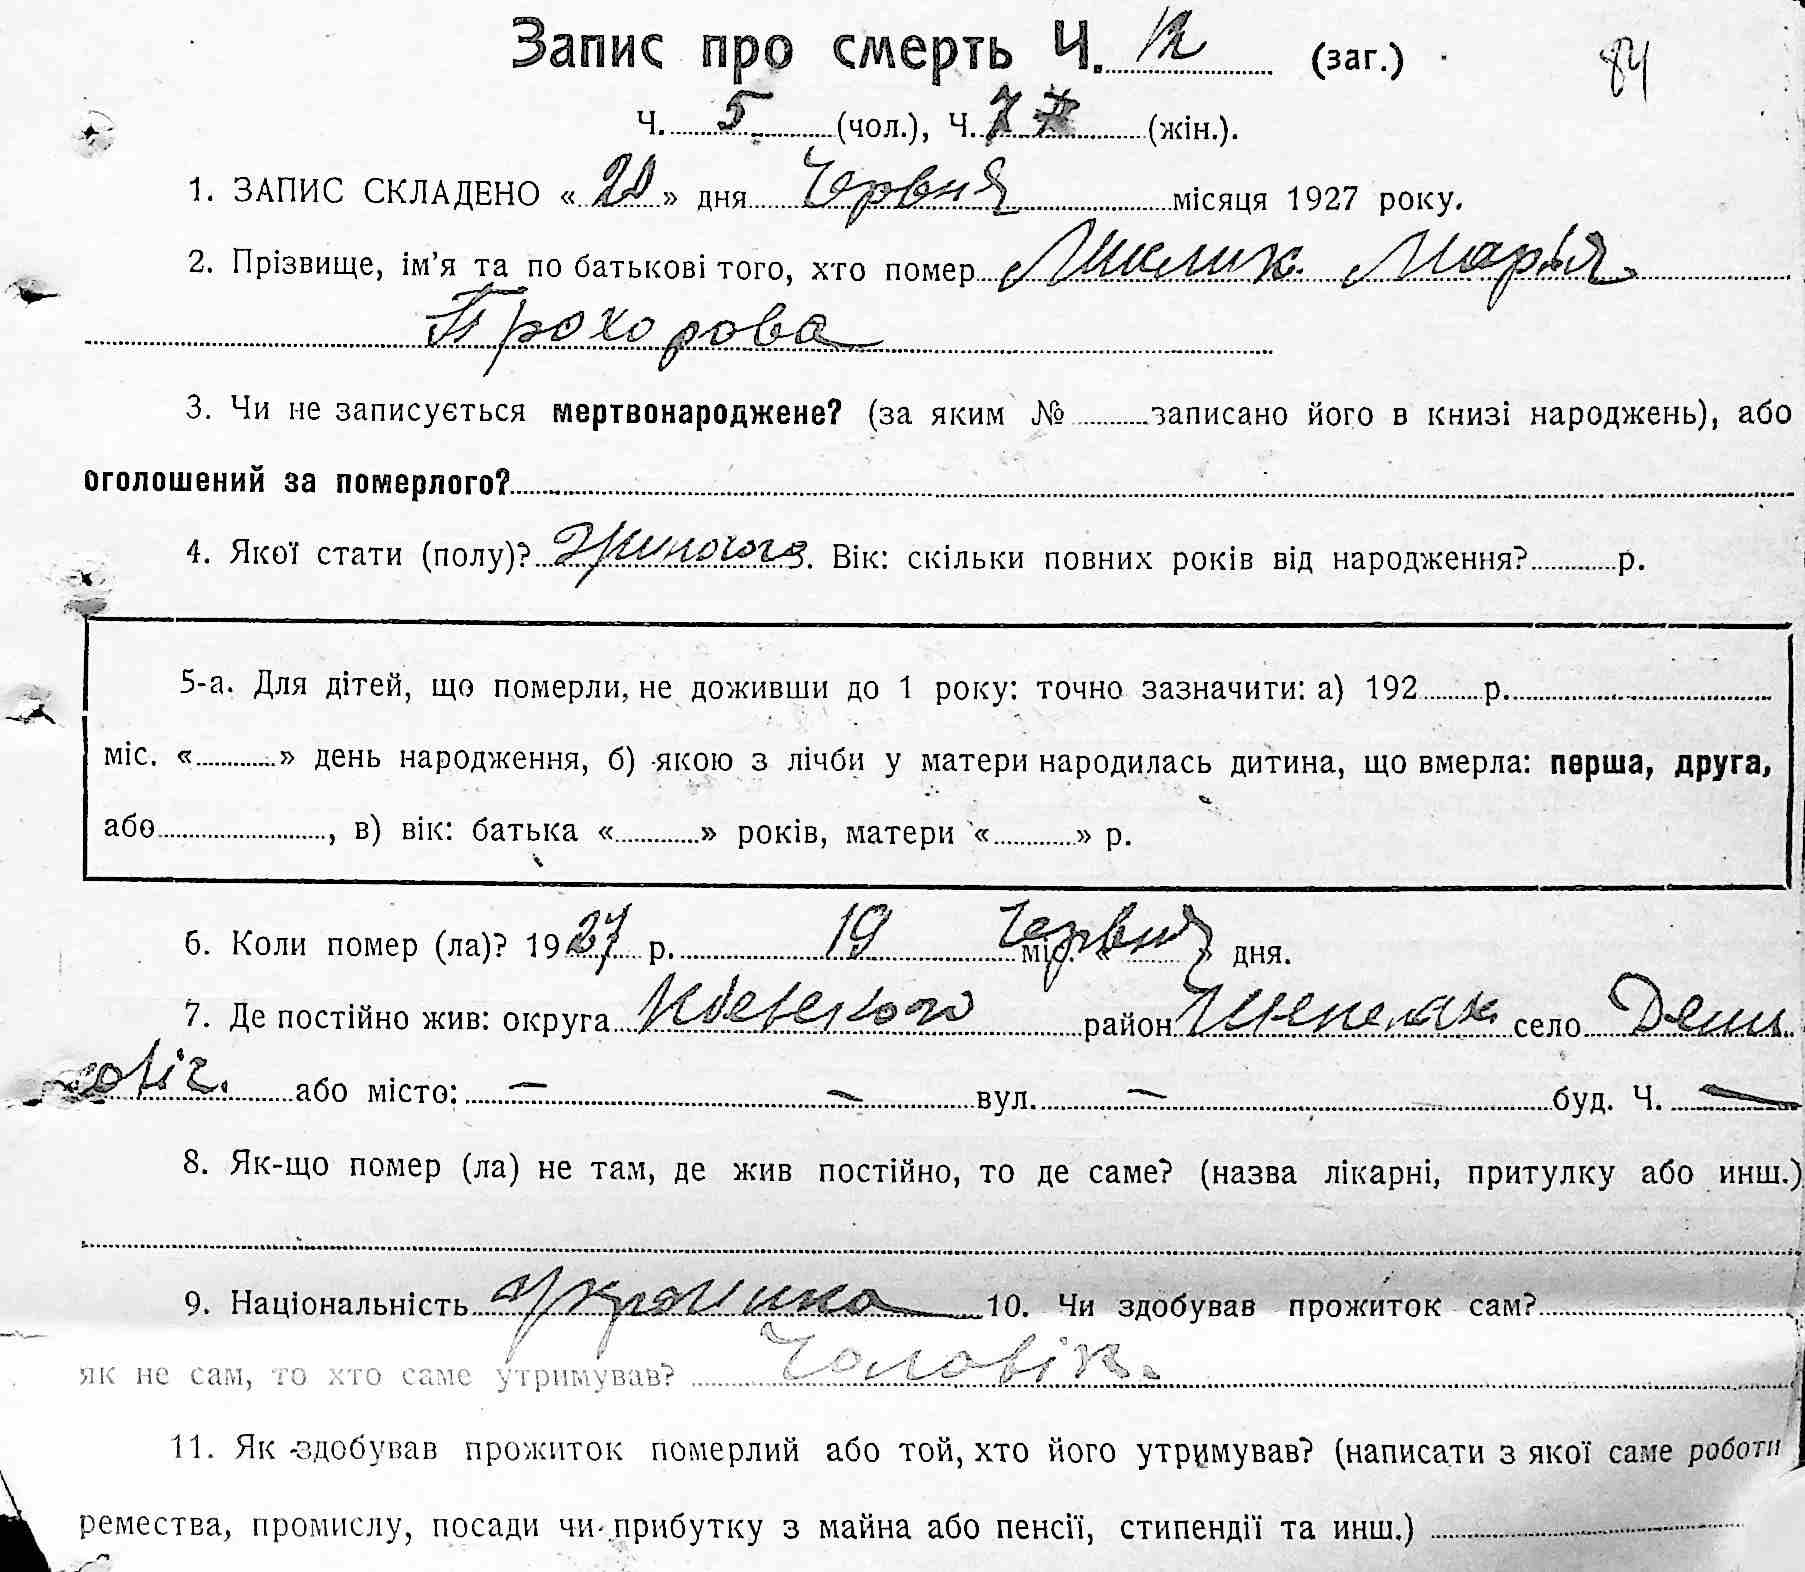 Запис про смерть Ч. 12 (заг.) 84
Ч. 5 (чол.), Ч. 7 7 (жін.).
1. ЗАПИС СКЛАДЕНО « 20 » дня Червня місяця 1927 року.
2. Прізвище, ім’я та по батькові того, хто помер Марія
Прохорова
3. Чи не записується мертвонароджене? (за яким № записано його в книзі народжень), або
оголошений за померлого?
4. Якої стати (полу)? Вік: скільки повних років від народження? р.
5-а. Для дітей, що померли, не доживши до 1 року: точно зазначити: а) 192 р.
міс. « » день народження, б) якою з лічби у матери народилась дитина, що вмерла: перша, друга,
або , в) вік: батька « » років, матери « » р.
6. Коли помер (ла)? 1927 р. 19 Червня міс. « » дня.
7. Де постійно жив: округа район село
або місто: — — вул. — буд. Ч. —
8. Як-що помер (ла) не там, де жив постійно, то де саме? (назва лікарні, притулку або инш.)
9. Національність Українка 10. Чи здобував прожиток сам?
як не сам, то хто саме утримував? Чоловік.
11. Як здобував прожиток померлий або той, хто його утримував? (написати з якої саме роботи
ремества, промислу, посади чи прибутку з майна або пенсії, стипендії та инш.)